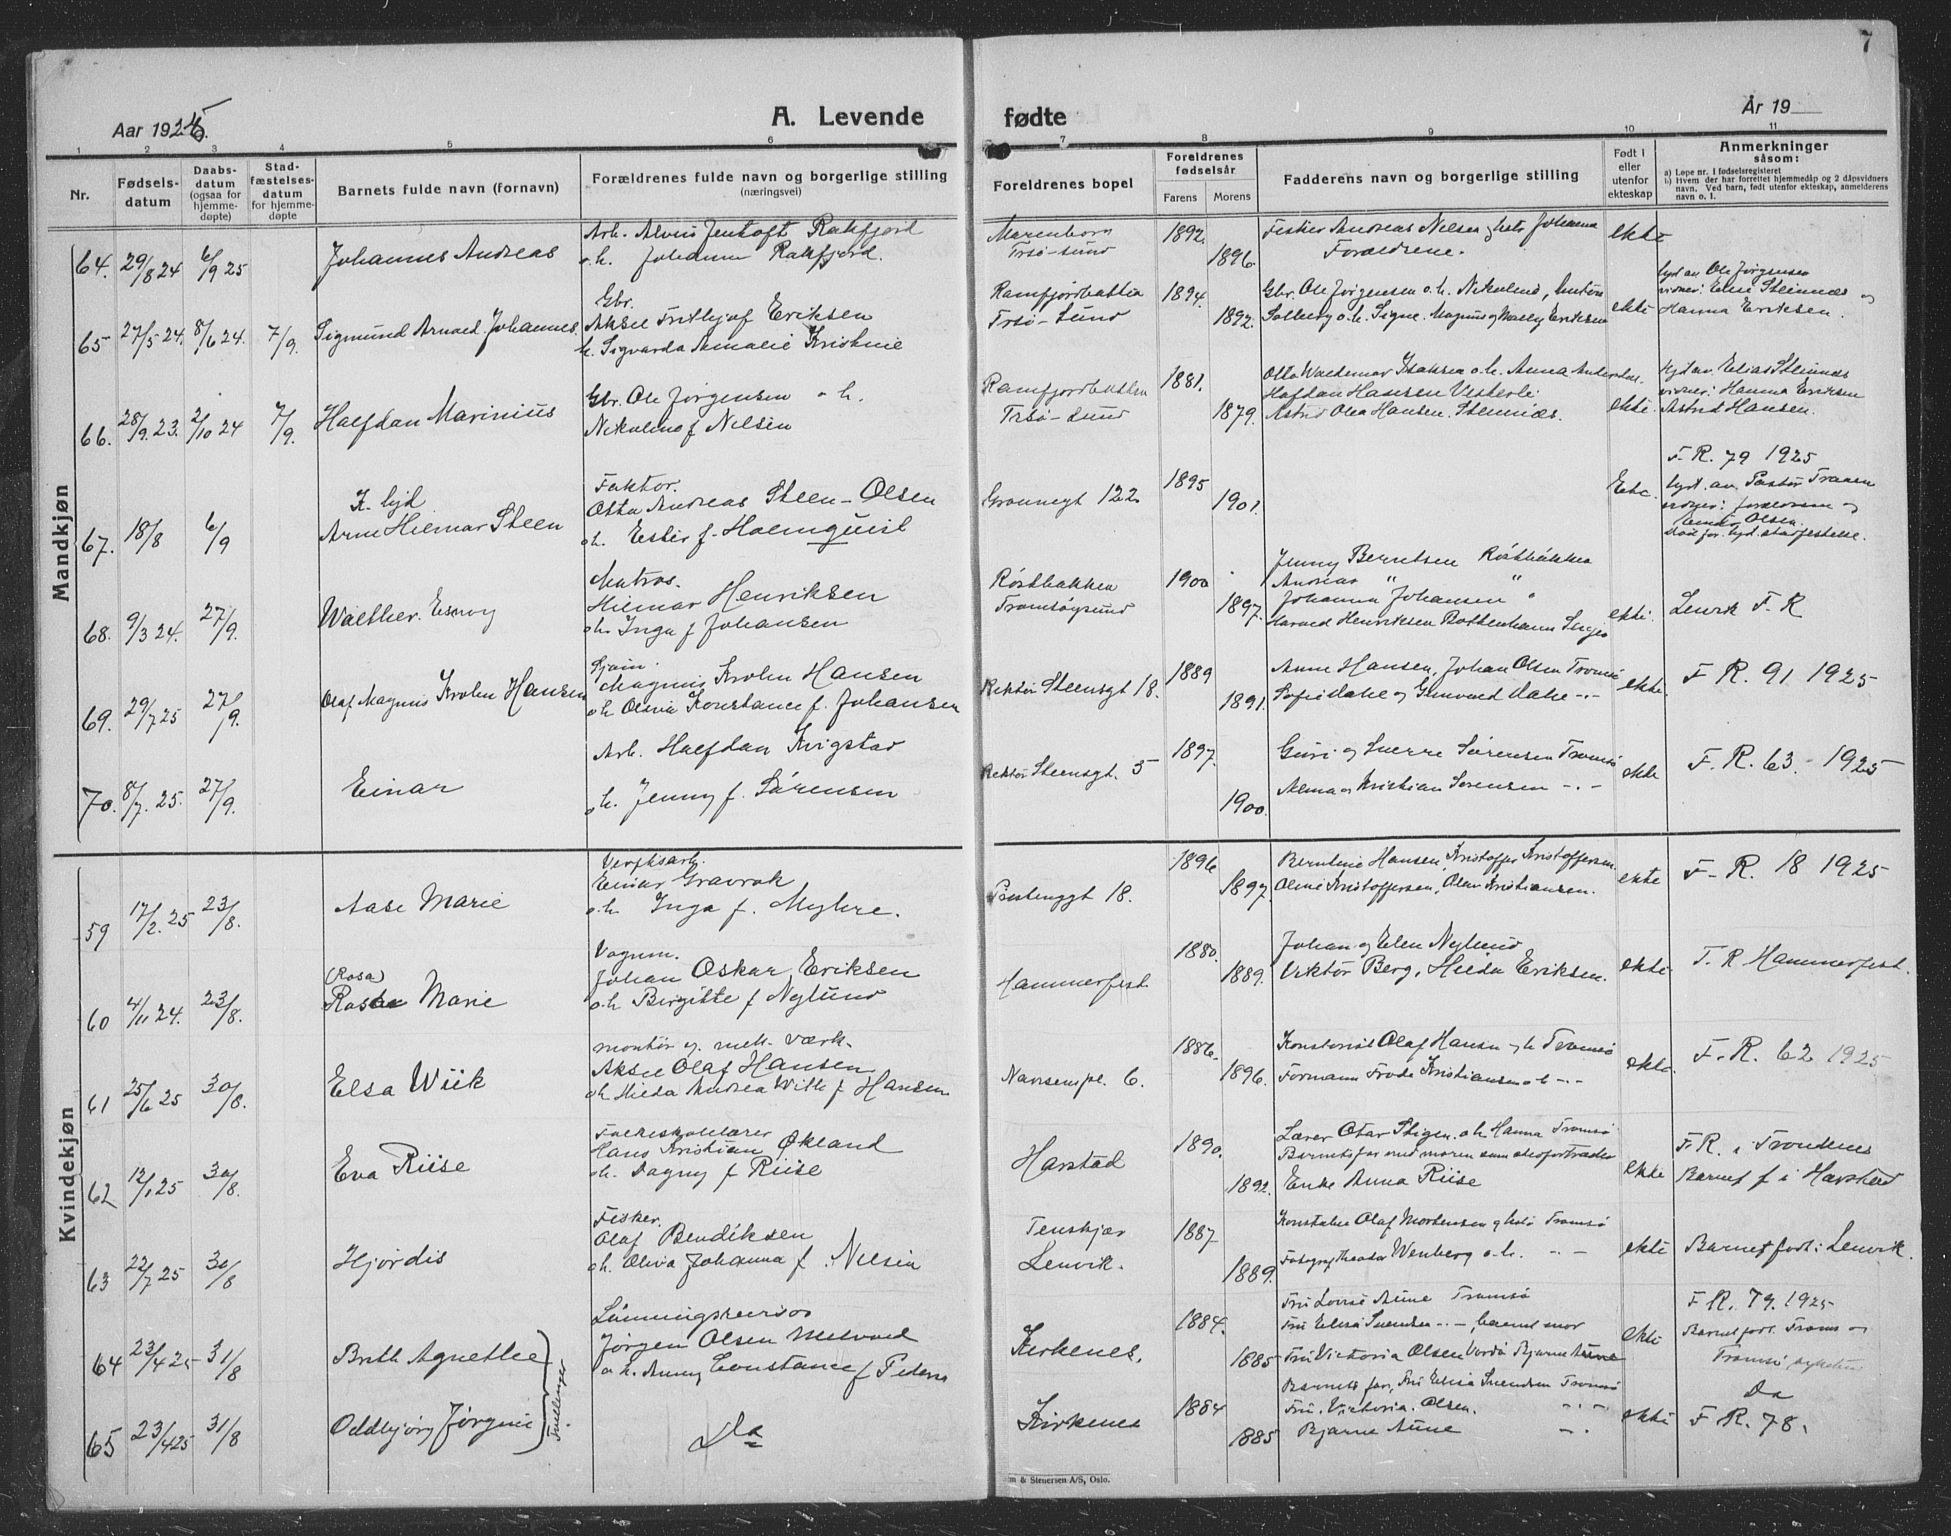 7
Aar 1925.
A. Levende
fødte
År 19
1 2 3 4 5 6 7 8 9 10 11
Nr.
Fødsels-
datum
Daabs-
datum
(ogsaa for
hjemme-
døpte)
Stad-
fæstelses-
datum
for hjemme-
døpte
Barnets fulde navn (fornavn)
Forældrenes fulde navn og borgerlige stilling
(næringsvei)
Foreldrenes bopel
Foreldrenes
fødselsår
Farens Morens
Fadderens navn og borgerlig stilling
Født i
eller
utenfor
ekteskap
Anmerkninger
såsom:
a) Løpe nr. i fødselsregisteret
b) Hvem der har forrettet hjemmedåp og 2 dåpsvidners
navn. Ved barn, født utenfor ekteskap, anmelderens
navn o. l.
Mandkjøn
64. 29/8 24 6/9 25 Johannes Andreas
Arb. Alvin Jentoft Rakfjord
o.h. Johanna Rakfjord.
Trsø-sund
1892. 1896.
Fisker Andreas Nilsen og hstr Johanna
Foreldrene.
ekte
65 27/5-24. 8/6 24. 7/9. Sigmund Arnved Johannes
Gbr.
Aksel Frithjof Eriksen
h. Sigvarda Amalie Kristine
Trsø-Sund
1894. 1892.
Gbr. Ole Jørgensen o.h. Nikoline, Anton
Solberg o.h. Signe. Magnus og Eriksen
ekte
av Ole Jørgensen
vidner: Elise Steinnæs og
Hanna Eriksen.
66. 28/9. 23. 2/10 24 7/9. Halfdan Marinius
Gbr. Ole Jørgensen o. h.
Nikoline f Nilsen
Trsø-Sund
1881. 1879.
Otto Waldemar Isaksen o.h. Anna
Halfdan Hansen
Astrid Olea Hansen. Steinnæs.
ekte
av Elias Steinnæs
vidner: Hanna Eriksen
Astrid Hansen.
67. 18/8 6/9
Arne Hilmar Steen
Faktor.
Otto Andreas Steen-Olsen
o.h. Ester f. Holmquist
Grønnegt 122
1895 1901.
F. R. 79 1925
av Pastor Traaen
vidner: forældrene og
Olsen
68. 9/3 24. 27/9. Walther
Matros.
Hilmar Henriksen
o.h. Inga f Johansen
Røstbakken
Tromsøysund
1900 1897.
Jenny Berntsen Røstbakken
Andreas " "
Johanna Johansen "
Harald Henriksen
ekte.
Lenvik F. R
69. 29/7 25 27/9. Olaf Magnus Krohn Hansen
Magnus Krohn Hansen
o.h. Olivia Konstance f. Johansen
Rektor Steensgt 18.
1889 1891.
Anne Hansen, Johan Olsen Tromsø
Sofie Dahl og Gunvord Dahl -.-
ekte.
F R. 91 1925
70. 8/7. 25. 27/9. Einar
Arb. Halfdan Kvigstad
o.h. Jenny f. Sørensen
Rektor Steensgt. 5
1897. 1900.
Guri og Sverre Sørensen Tromsø
Alma og Kristian Sørensen -.-
ekte
F. R. 63. 1925
Kvindekjøn
59 17/2. 25 23/8. Aase Marie
Verftsarb.
Einar Gravrok
o.h. Inga f. Myhre.
18.
1896 1897.
Berntine Hansen, Kristoffer Kristoffersen.
Oline Kristoffersen, Olav Kristiansen.
ekte
F. R. 18 1925
60 4/11 24. 23/8. (Rosa)
Marie
Vognm.
Johan Oskar Eriksen
o.h Birgitte f Nylund
Hammerfest.
1880. 1889.
Johan og Elen Nylund
Viktor Berg, Hilda Eriksen.
ekte
F. R Hammerfest.
61 25/6 25 30/8. Elsa Wiik
montør v. mek. værk.
Aksel Olaf Hansen
o.h Hilda Andrea Wiik f Hansen
Nansenspl. 6.
1886. 1896.
Konstabel Olaf Hansen og h Tromsø
Formann Frode Kristiansen o.h -.-
ekte.
F. R. 62 1925
62 12/1 25 30/8. Eva Riise
Folkeskolelærer
Hans Kristian Økland
o.h. Dagny f Riise
Harstad
1890. 1892.
Lærer Otar Stigen o.h Hanna Tromsø
Barnets far med moren som
Enke Anna Riise
ekte
F. R. i Trondenes
Barnet f i Harstad
63 22/7 25 30/8 Hjørdis
Fisker.
Olaf Bendiksen
o.h. Olivia Johanna f. Nilsen
Tenskjær
Lenvik.
1887 1889.
Konstabel Olaf Mortensen og hstr Tromsø
Wenberg o.h. -.-
ekte
Barnet født i Lenvik.
64 23/4 25 31/8 Brith Agnethe
Tvillinger
Jørgen Olsen
o.h. Anny Constance f Peders
Kirkenes.
1884. 1885
Fru Lovise Aune Tromsø
Fru Elisa Svendsen -.-, barnets mor
Fru Victoria Olsen Vardø Bjarne Aune
ekte
F R. 79. 1925
Barnet født Troms o
Tromsø sykehus
65 23/4 25 31/8 Oddbjørg Jørgine
Da
Kirkenes
1884 1885
Barnets far, Fru Elisa Svendsen Tromsø
Fru. Victoria. Olsen. -.-
Bjarne Aune -.-
ekte
Da
F R. 78.
m & Stenersen A/S, Oslo.